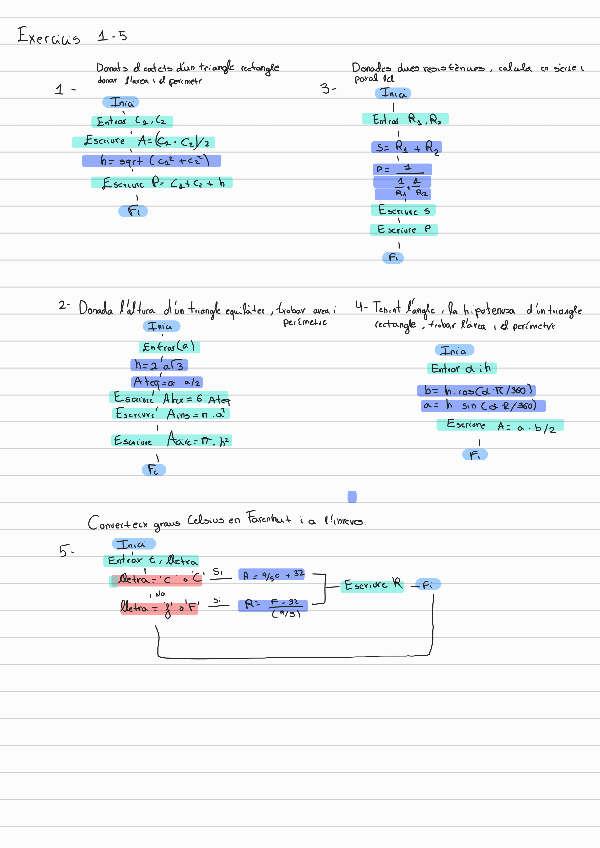 Exercicis 1-5
1 - Donats el catets d'un triangle rectangle
donar l'area i el perimetre
Inici
Entrar C1, C2
Escriure A=(C1 · C2)/2
h = sqrt (C1² + C2²)
Escriure P= C1 + C2 + h
Fi
3- Donades dues resistències, calcula en sèrie i
paral·lel
Inici
Entrar R1, R2
S= R1 + R2
P= 1
1/R1 + 1/R2
Escriure S
Escriure P
Fi
2- Donada l'altura d'un triangle equilàter, trobar area i
perímetre
Inici
Entrar (a)
h = 2 a√3
Ateq = a · a/2
Escriure Ahex = 6 Ateq
Escriure Ains = π · a²
Escriure Acirc = π · h²
Fi
4- Tenint l'angle i la hipotenusa d'un triangle
rectangle, trobar l'area i el perímetre
Inici
Entrar α i h
b= h · cos(α · π/360)
a = h sin (α π/360)
Escriure A= a · b/2
Fi
Converteix graus Celsius en Farenheit i a l'inreves.
5- Inici
Entrar t, lletra
lletra = 'c' o 'C' Si R = 9/5c + 32
No
lletra = 'f' o 'F' Si R= F - 32
(9/5)
Escriure R Fi